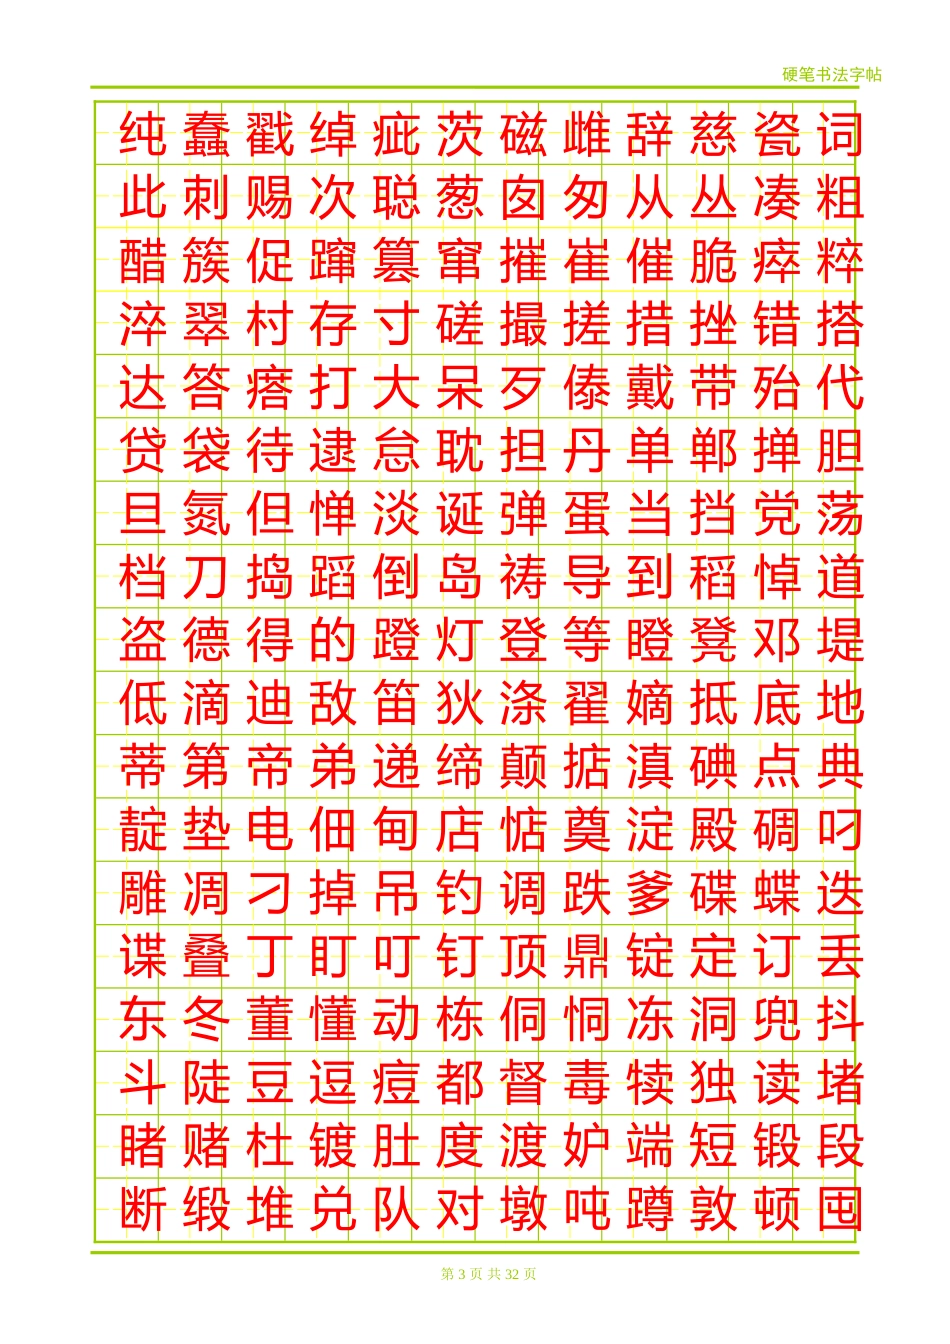 硬笔书法字帖
纯蠢戳绰疵茨磁雌辞慈瓷词
此刺赐次聪葱囱匆从丛凑粗
醋簇促蹿篡窜摧崔催脆瘁粹
淬翠村存寸磋撮搓措挫错搭
达答瘩打大呆歹傣戴带殆代
贷袋待逮怠耽担丹单郸掸胆
旦氮但惮淡诞弹蛋当挡党荡
档刀捣蹈倒岛祷导到稻悼道
盗德得的蹬灯登等瞪凳邓堤
低滴迪敌笛狄涤翟嫡抵底地
蒂第帝弟递缔颠掂滇碘点典
靛垫电佃甸店惦奠淀殿碉叼
雕凋刁掉吊钓调跌爹碟蝶迭
谍叠丁盯叮钉顶鼎锭定订丢
东冬董懂动栋侗恫冻洞兜抖
斗陡豆逗痘都督毒犊独读堵
睹赌杜镀肚度渡妒端短锻段
断缎堆兑队对墩吨蹲敦顿囤
第 3 页 共 32 页